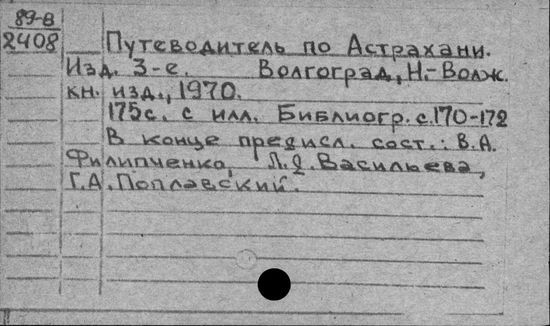 89-8
2408
Путеводитель по Астрахани.
Изд. 3-е. Волгоград, Н.-Волж.
кн. изд., 1970.
175с. с илл. Библиогр. с.170-172
В конце предисл. сост.: В.А.
Филипченко, Васильева,
Г.А. Поплавский.